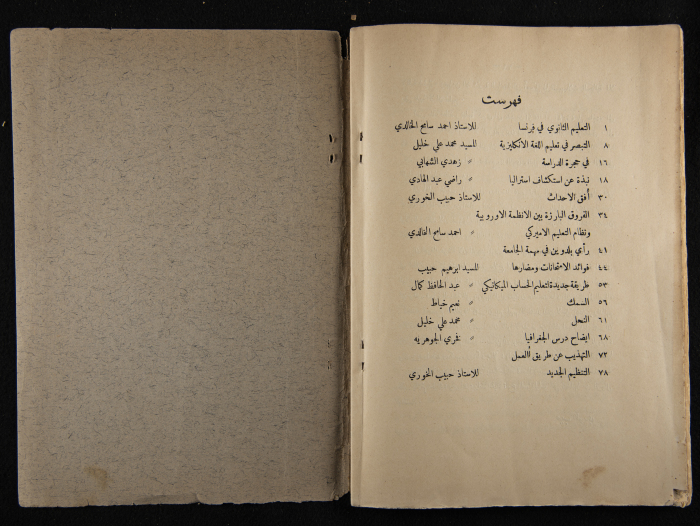 فهرست
١ التعليم الثانوي في فرنسا للاستاذ احمد سامح الخالدي
٨ التبصر في تعليم اللغة الانكليزية للسيد محمد علي خليل
١٦ في حجرة الدراسة " زهدي الشهابي
١٨ نبذة عن استكشاف استراليا " راضي عبد الهادي
٣٠ أفق الاحداث للاستاذ حبيب الخوري
٣٤ الفروق البارزة بين الانظمة الاوروبية
ونظام التعليم الاميركي " احمد سامح الخالدي
٤١ رأي بلدوين في مهمة الجامعة
٤٤ فوائد الامتحانات ومضارها للسيد ابرهيم حبيب
٥٣ طريقة جديدة لتعليم الحساب الميكانيكي " عبد الحافظ كمال
٥٦ السمك " نعيم خياط
٦١ النحل " محمد علي خليل
٦٨ ايضاح درس الجغرافيا " فخري الجوهريه
٧٢ التهذيب عن طريق العمل
٧٨ التنظيم الجديد للاستاذ حبيب الخوري